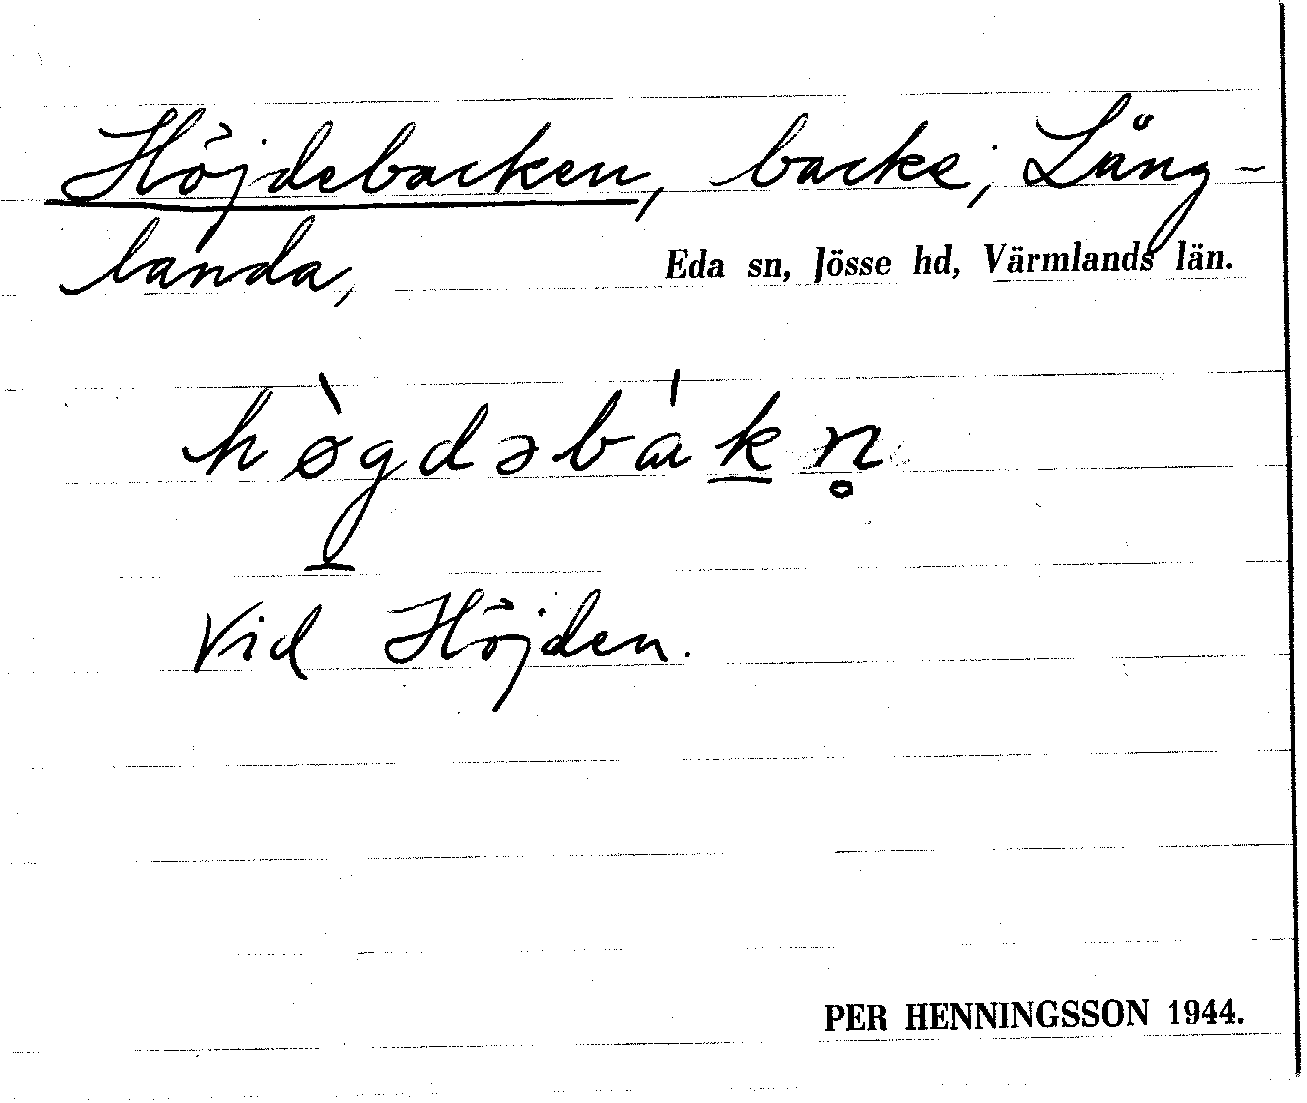 Höjdebacken, backe; Lång-
landa, Eda sn, Jösse hd, Värmlands län.
hø̀g̲dəbák̲n̥
Vid Höjden.
PER HENNINGSSON 1944.